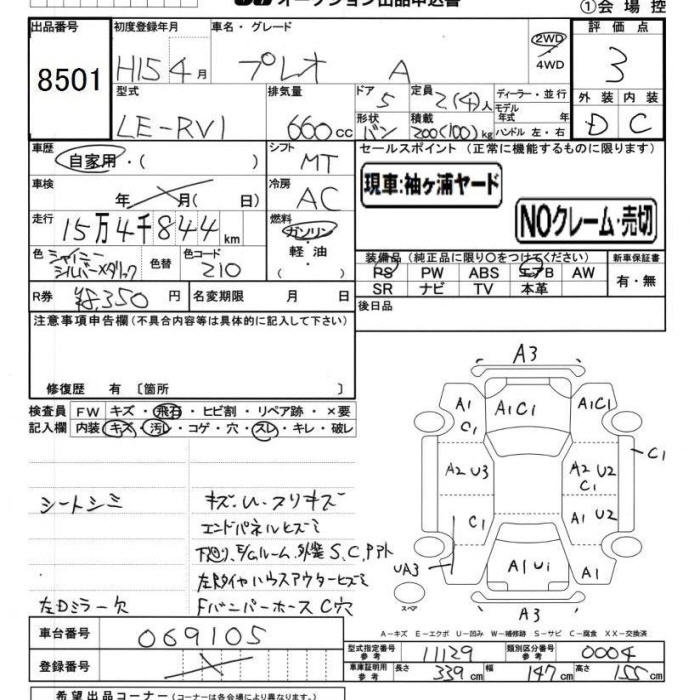 オークション出品申込書
①会 場 控
出品番号 初度登録年月 車名・グレード 評 価 点
8501 H15 4月 プレオ A 2WD ・ 4WD 3
型式 排気量 ドア 5 定員 2(4)人 ディーラー・並行 外 装 内 装
LE-RV1 660cc 形状 バン 積載 200(100)kg モデル年式 年 ハンドル 左・右 D C
車歴 自家用・( ) シフト MT セールスポイント (正常に機能するものに限ります)
車検 年 月( 日) 冷房 AC 現車:袖ヶ浦ヤード
走行 15万4千844km 燃料 ガソリン・軽 油・( ) NOクレーム・売切
色 シャイニーシルバーメタリック 色替 色コード 210 装備品(純正品に限り〇をつけてください) 新車保証書
PS PW ABS エアB AW 有・無
SR ナビ TV 本革
R券 ¥8,350 円 名変期限 月 日 後日品
注意事項申告欄(不具合内容等は具体的に記入して下さい)
修復歴 有 〔箇所 〕
検査員 FW キズ・飛石・ヒビ割・リペア跡・×要
記入欄 内装 キズ・汚レ・コゲ・穴・スレ・キレ・破レ
シートシミ キズ.U.スリキズ
エンドパネルヒズミ
下廻り、E/Gルーム、外装 S、C、P
ハウスアウターヒズミ
左Dミラー欠 Fバンパーホース C穴
A3
A1 A1C1 A1C1
C1 C1
A2 U3 A2 U2
C1
C1 A1 U2
UA3 A1U1 A1
スペア A3
A-キズ E-エクボ U-凹み W-補修跡 S-サビ C-腐食 XX-交換済
車台番号 069105
登録番号
型式指定番号参考 11129 類別区分番号参考 0004
車庫証明用参考 長さ 339cm 幅 147cm 高さ 155cm
希望出品コーナー(コーナーは各会場により異なります。)